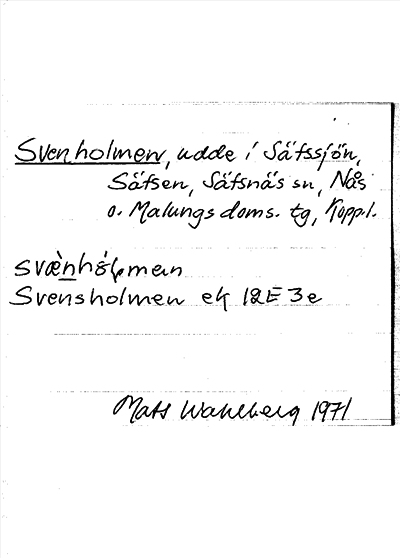 Svenholmen, udde i Säfssjön,
Säfsen, Säfsnäs sn, Nås
o. Malungs doms. tg, Kopp.l.
svæ̀nhólmen
Svensholmen ek 12E 3e
Mats Wahlberg 1971